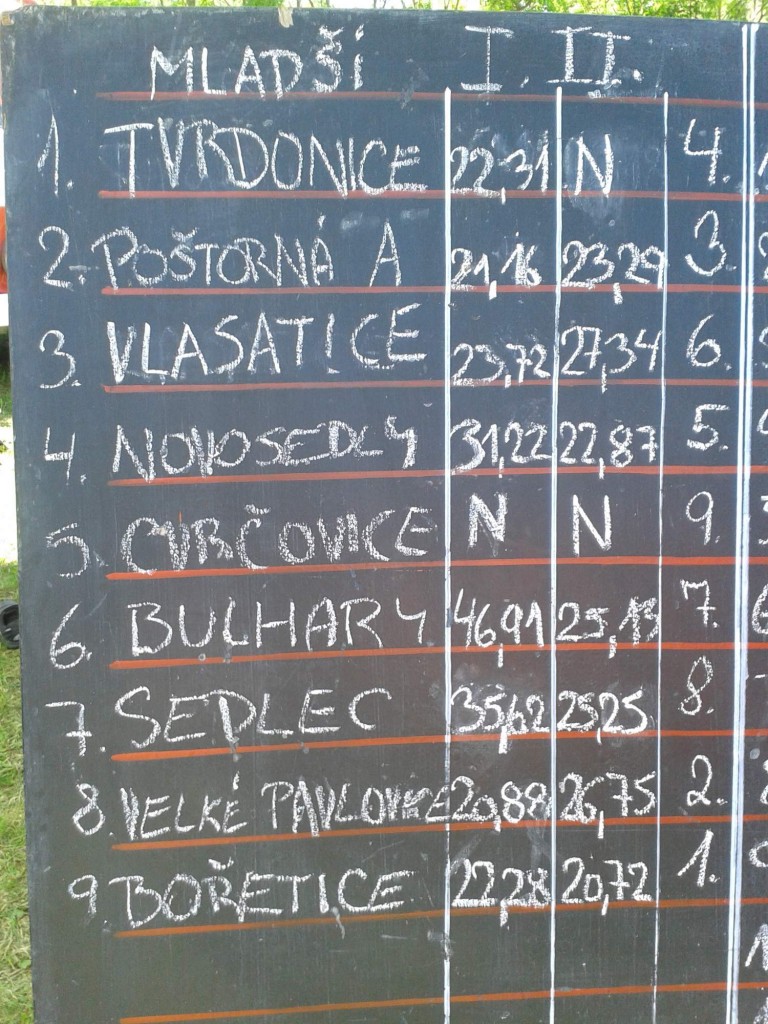 MLADŠÍ I. II.
1. TVRDONICE 22,31 N 4.
2. POŠTORNÁ A 21,16 23,29 3.
3. VLASATICE 23,72 27,34 6.
4. NOVOSEDLY 31,22 22,87 5.
5. CVRČOVICE N N 9.
6. BULHARY 46,91 25,13 7.
7. SEDLEC 35,62 25,25 8.
8. VELKÉ PAVLOVICE 20,88 26,75 2.
9. BOŘETICE 22,28 20,72 1.